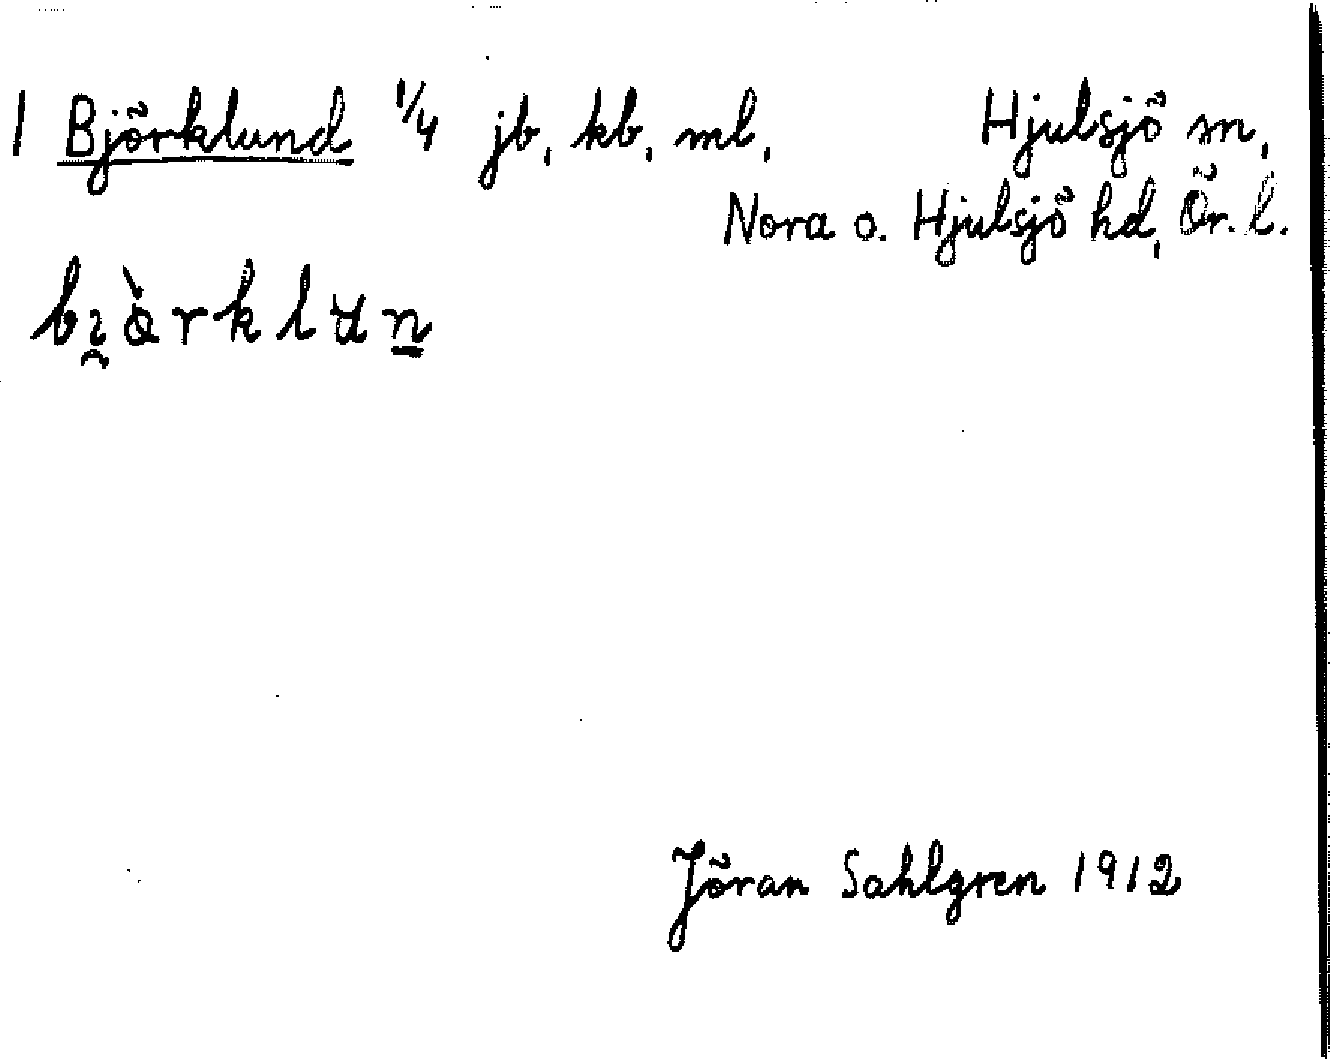 1 Björklund 1/4 jb, kb, ml, Hjulsjö sn,
Nora o. Hjulsjö hd, Ör. l.
Jöran Sahlgren 1912